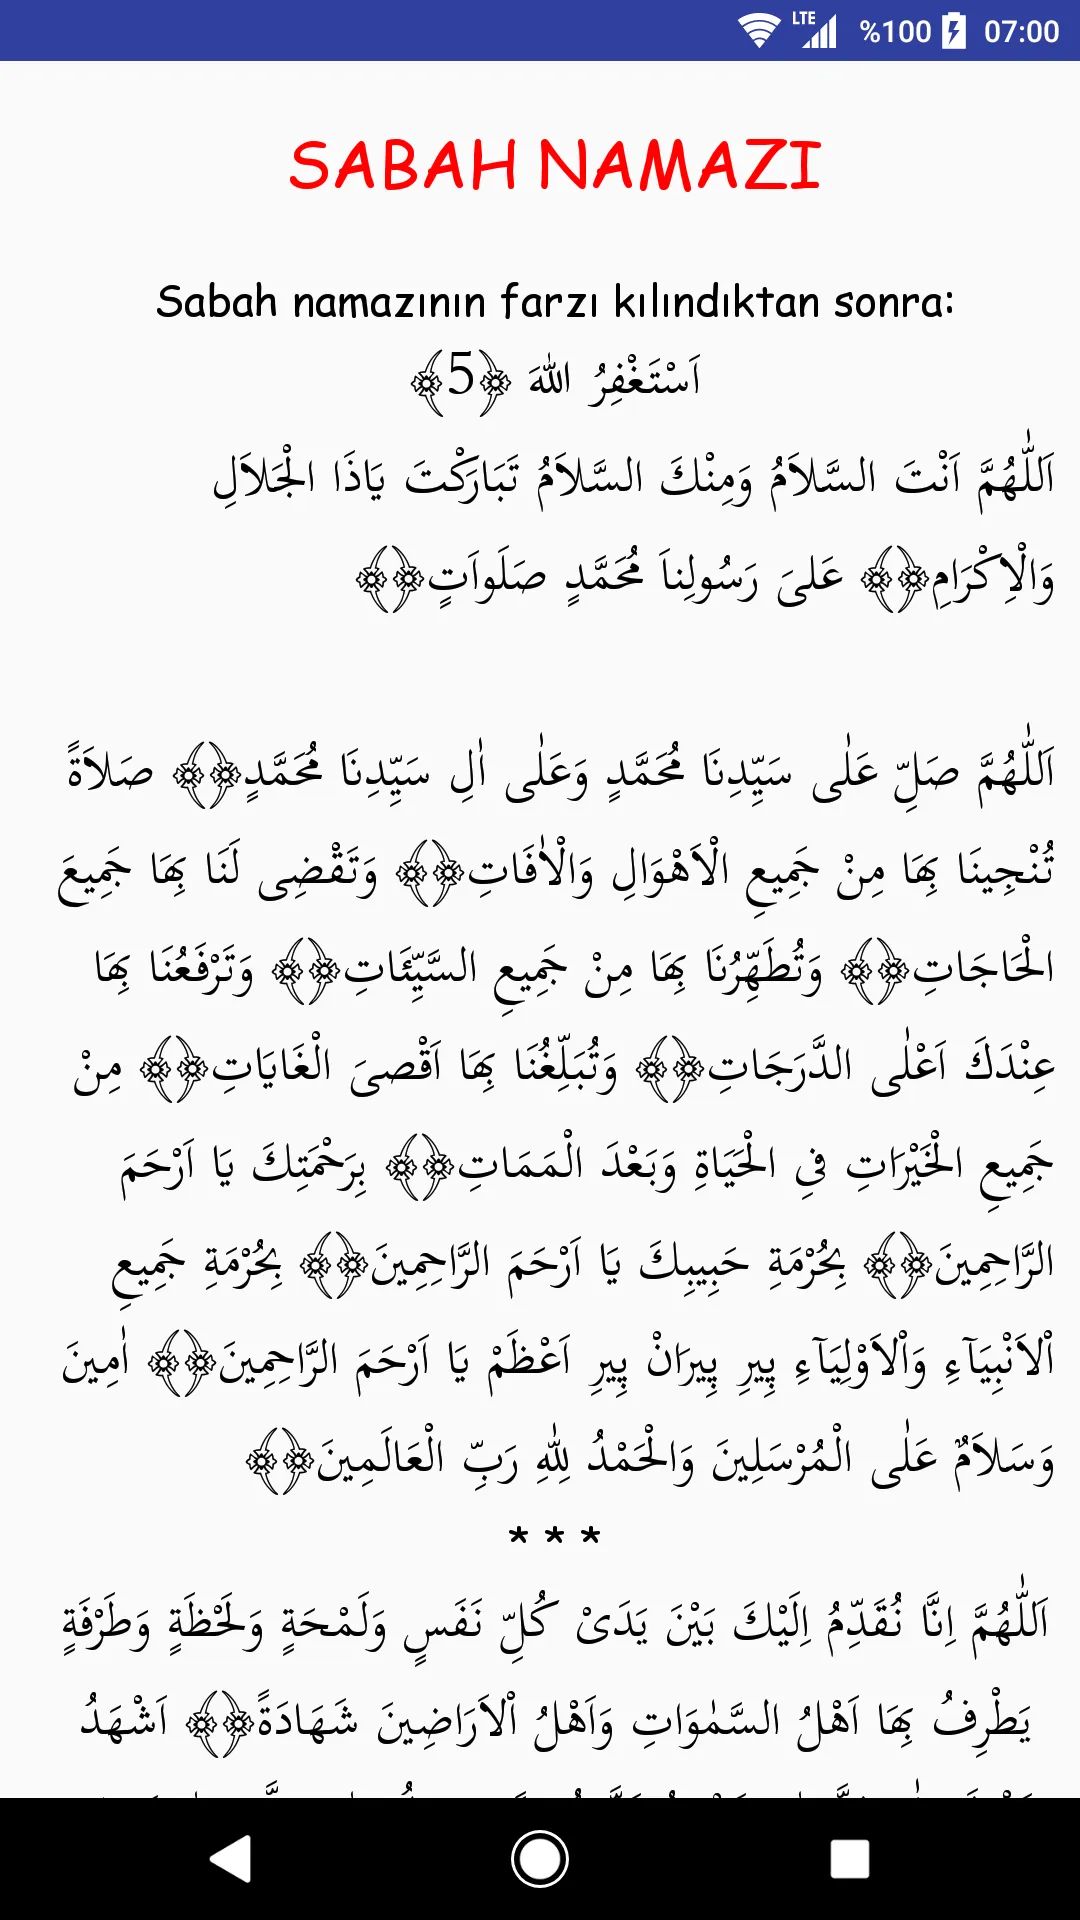 LTE %100 07:00
SABAH NAMAZI
Sabah namazının farzı kılındıktan sonra:
اَسْتَغْفِرُ اللهَ ﴿5﴾
اَللّٰهُمَّ اَنْتَ السَّلاَمُ وَمِنْكَ السَّلاَمُ تَبَارَكْتَ يَاذَا الْجَلاَلِ
وَالْاِكْرَامِ﴿﴾ عَلىَ رَسُولِناَ مُحَمَّدٍ صَلَواَتٍ﴿﴾
اَللّٰهُمَّ صَلِّ عَلٰى سَيِّدِنَا مُحَمَّدٍ وَعَلٰى اٰلِ سَيِّدِنَا مُحَمَّدٍ﴿﴾ صَلاَةً
تُنْجِينَا بِهَا مِنْ جَمِيعِ الْاَهْوَالِ وَالْاٰفَاتِ﴿﴾ وَتَقْضِى لَنَا بِهَا جَمِيعَ
الْحَاجَاتِ﴿﴾ وَتُطَهِّرُنَا بِهَا مِنْ جَمِيعِ السَّيِّئَاتِ﴿﴾ وَتَرْفَعُنَا بِهَا
عِنْدَكَ اَعْلٰى الدَّرَجَاتِ﴿﴾ وَتُبَلِّغُنَا بِهَا اَقْصىَ الْغَايَاتِ﴿﴾ مِنْ
جَمِيعِ الْخَيْرَاتِ فىِ الْحَيَاةِ وَبَعْدَ الْمَمَاتِ﴿﴾ بِرَحْمَتِكَ يَا اَرْحَمَ
الرَّاحِمِينَ﴿﴾ بِحُرْمَةِ حَبِيبِكَ يَا اَرْحَمَ الرَّاحِمِينَ﴿﴾ بِحُرْمَةِ جَمِيعِ
اْلاَنْبِيَآءِ وَاْلاَوْلِيَآءِ پِيرِ پِيرَانْ پِيرِ اَعْظَمْ يَا اَرْحَمَ الرَّاحِمِينَ﴿﴾ اٰمِينَ
وَسَلاَمٌ عَلٰى الْمُرْسَلِينَ وَالْحَمْدُ لِلّٰهِ رَبِّ الْعَالَمِينَ﴿﴾
* * *
اَللّٰهُمَّ اِنَّا نُقَدِّمُ اِلَيْكَ بَيْنَ يَدَىْ كُلِّ نَفَسٍ وَلَمْحَةٍ وَلَحْظَةٍ وَطَرْفَةٍ
يَطْرِفُ بِهَا اَهْلُ السَّمٰوَاتِ وَاَهْلُ اْلاَرَاضِينَ شَهَادَةً﴿﴾ اَشْهَدُ